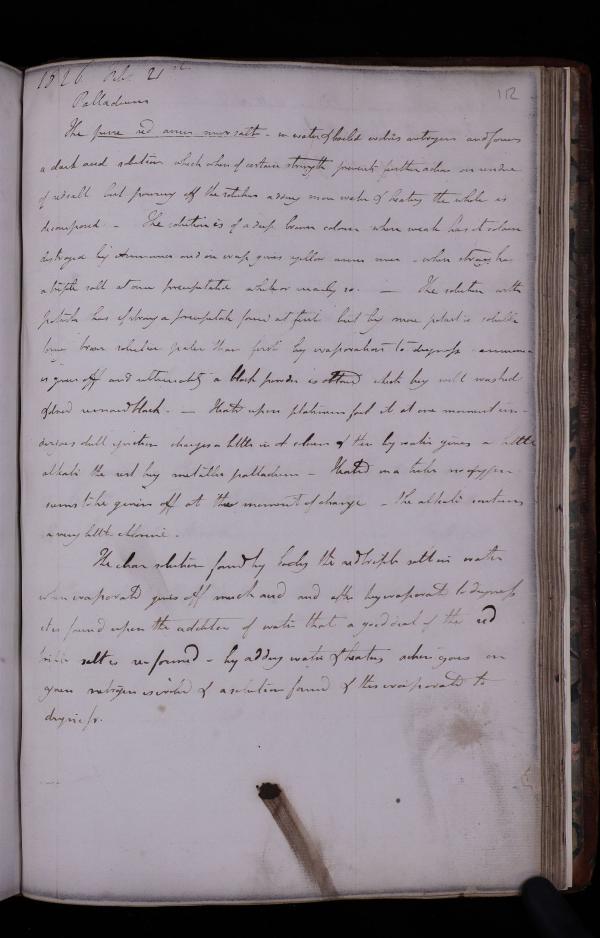 1826 Feb. 21st
112
Palladium
The pure red amm muro salt - in water & boiled evolves nitrogen and forms
a dark acid solution which when of certain strength prevents further action on residue
of red salt but pouring off the solution adding more water & heating the whole is
decomposed - The solution is of a deep brown colour when weak has its colour
destroyed by Ammonia and on evap gives yellow amm mur - when strong has
a triple salt at once precipitated white or nearly so. - The solution with
potash has if strong a precipitate formed at first but by more potash is soluble
brown solution paler than first by evaporation to dryness ammonia
is given off and ultimately a black powder is obtained which by well washed
& dried remained black. - Heated upon platinum foil it at one moment
dull ignition changes a little in colour & then by water gives a little
alkali the rest being metallic palladium - Heated in a tube no oxygen
seems to be given off at the moment of change - the alkali contains
a very little chlorine.
The clear solution found by boiling the red triple salt in water
when evaporated gives off much acid and after being evaporated to dryness
it is found upon the addition of water that a good deal of the red
triple salt is re-formed - by adding water & heating action goes on
again nitrogen is evolved & a solution formed & this evaporated to
dryness.